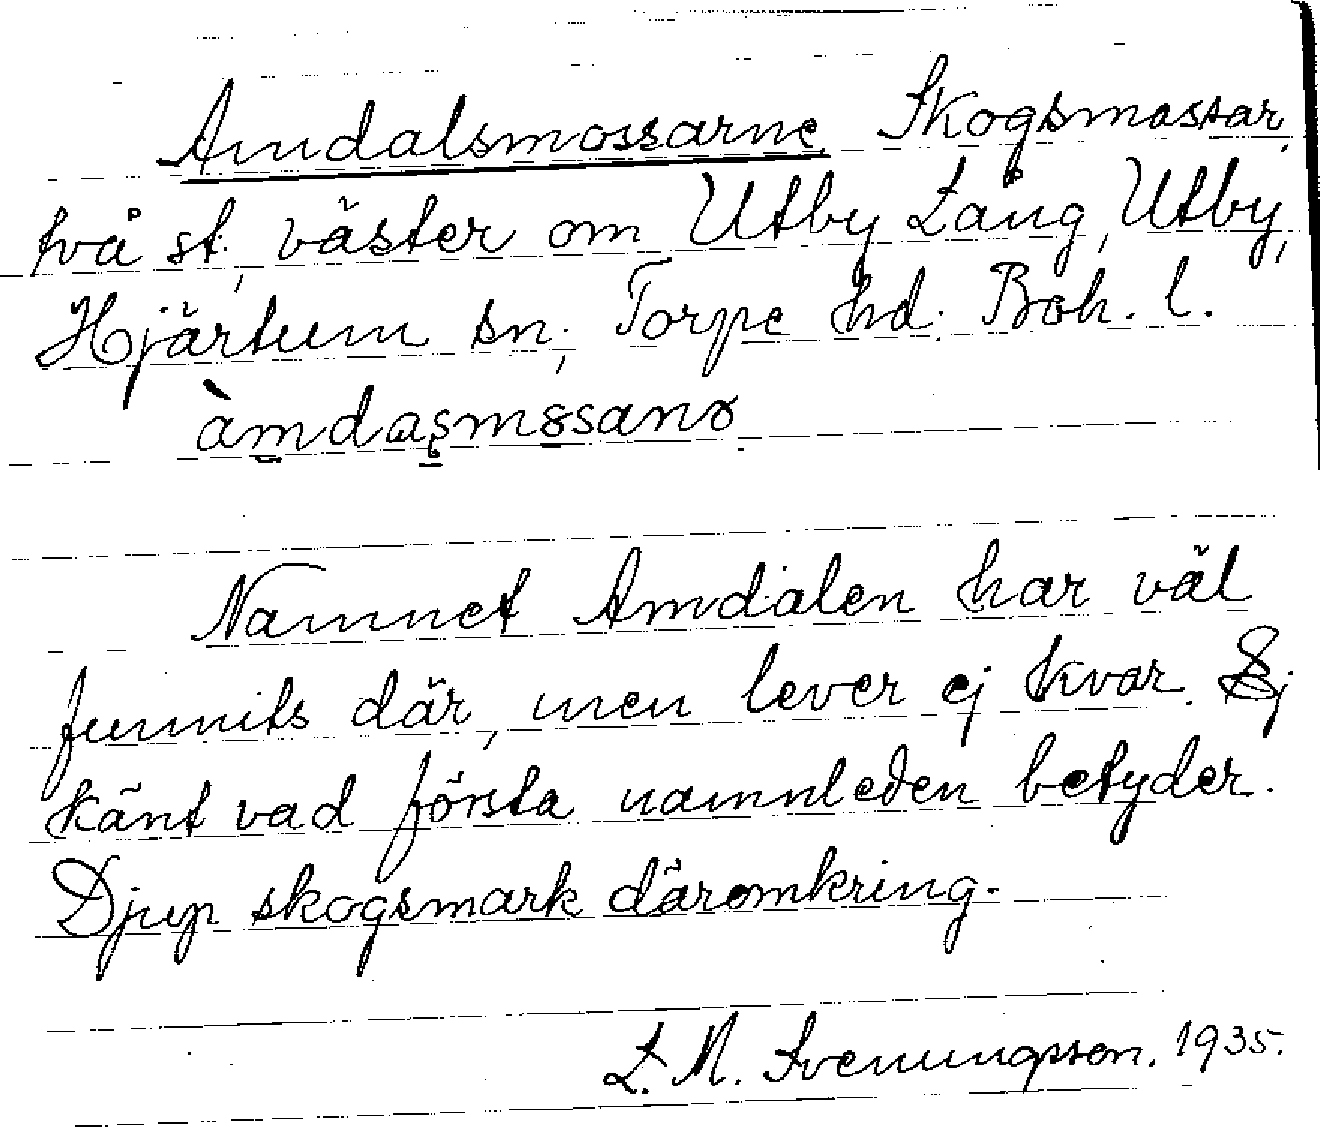 Amdalsmossarne Skogsmossar,
två st, väster om Utby Lång, Utby,
Hjärtum sn, Torpe hd. Boh. l.
Namnet Amdalen har väl
funnits där, men lever ej kvar. Ej
känt vad första namnleden betyder.
Djup skogsmark däromkring.
L. M. Svenungsson. 1935.